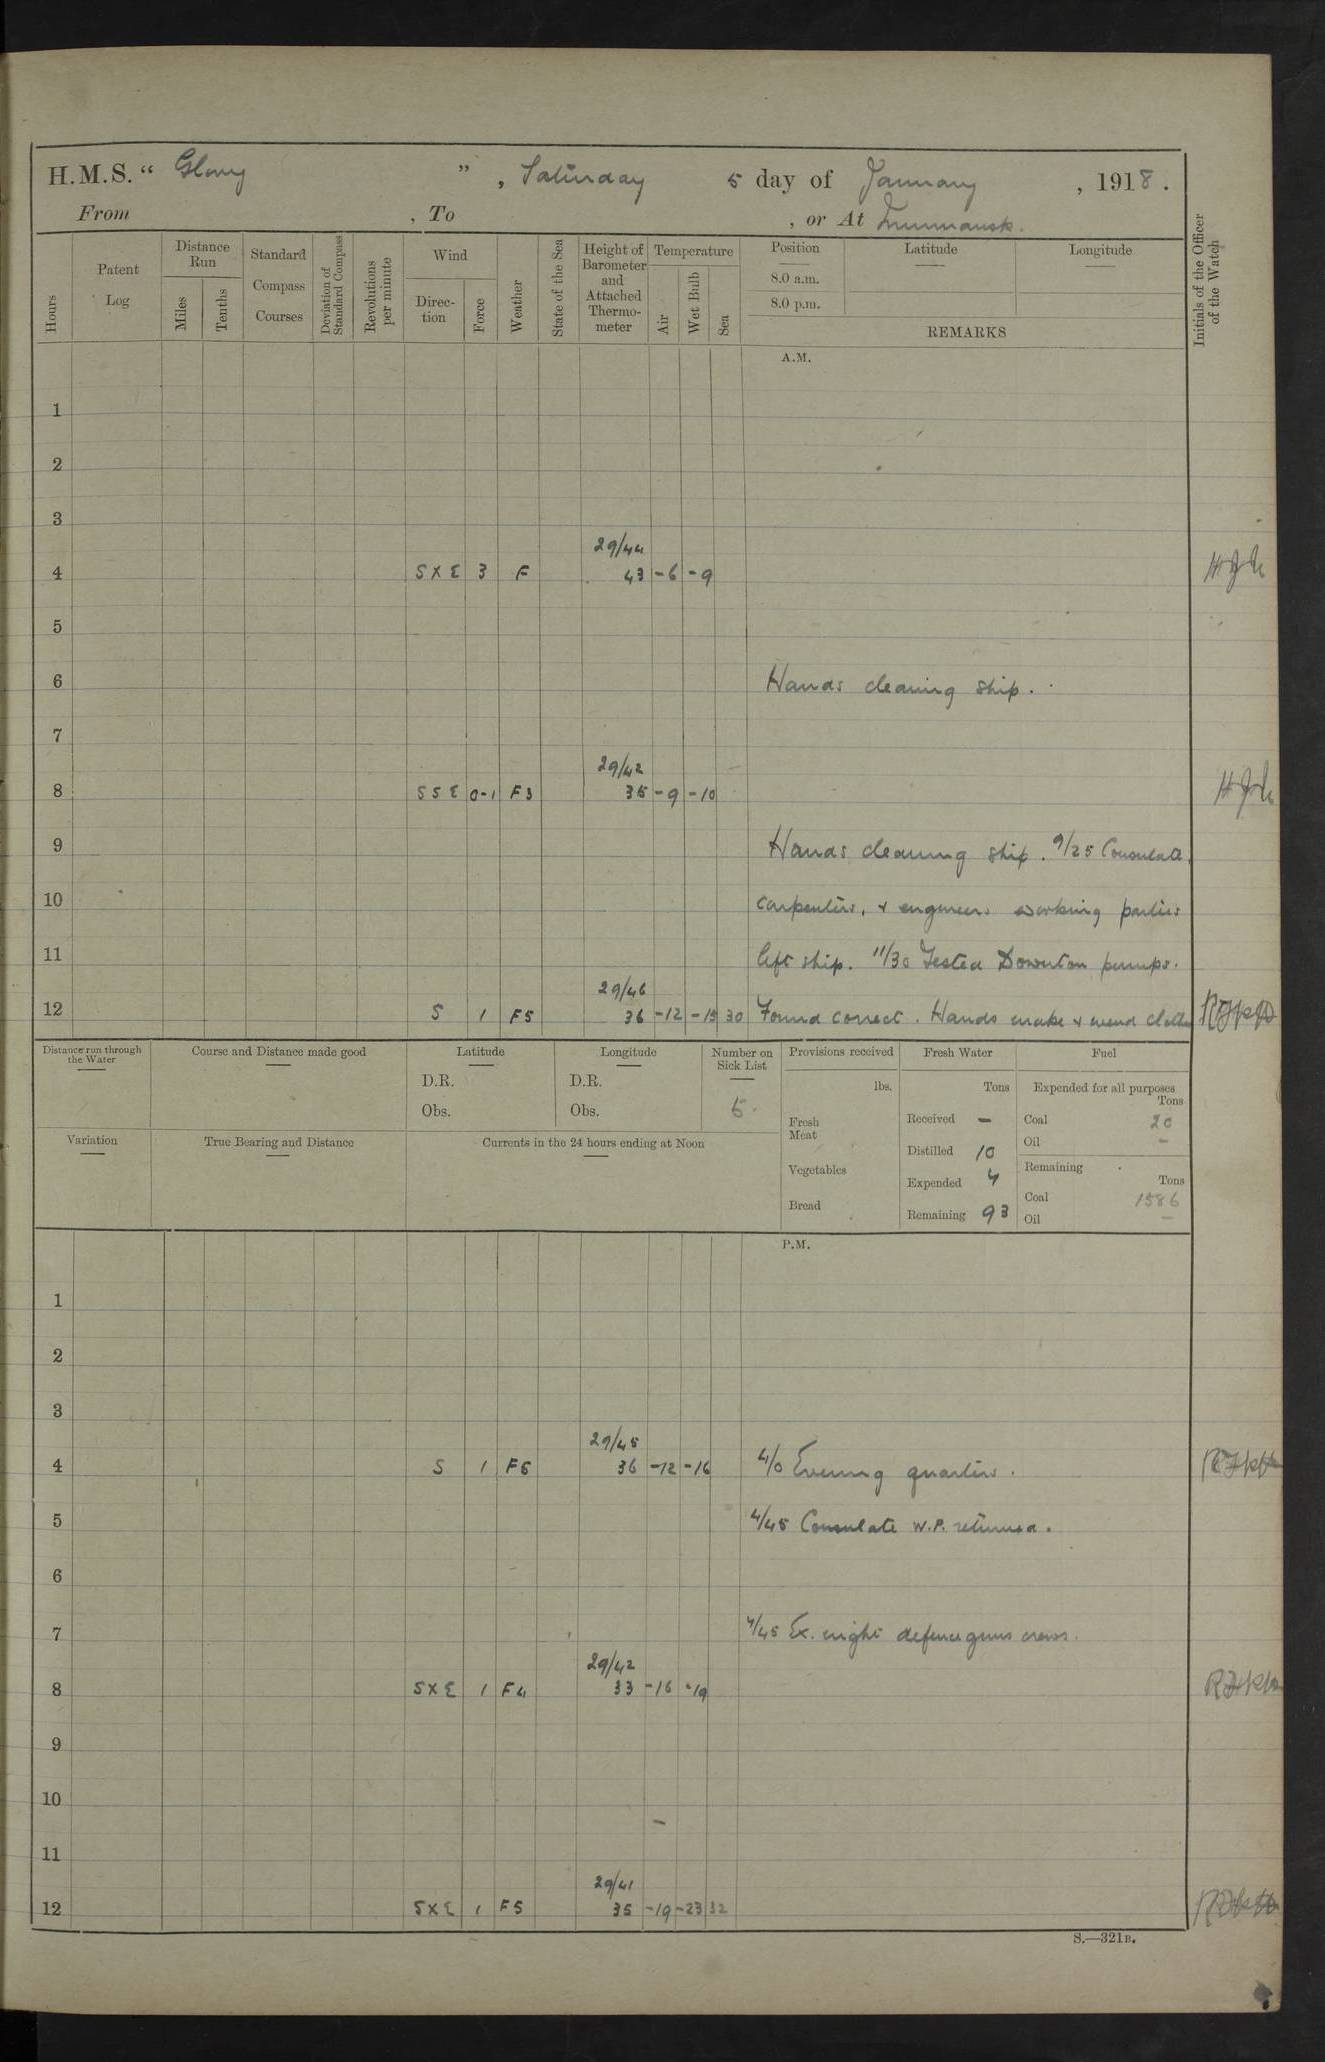 H.M.S. “ Glory ” , Saturday 5 day of January , 1918 .
From , To , or At Murmansk.
Hours
Patent Log
Distance Run
Miles
Tenths
Standard Compass Courses
Deviation of Standard Compass
Revolutions per minute
Wind
Direc- tion
Force
Weather
State of the Sea
Height of Barometer and Attached Thermo- meter
Temperature
Air
Wet Bulb
Sea
Position
Latitude
Longitude
8.0 a.m.
8.0 p.m.
REMARKS
Initials of the Officer of the Watch
A.M.
1
2
3
29/44
4 S X E 3 F 43 -6 -9
5
6 Hands cleaning ship.
7
29/42
8 S S E 0-1 F3 35 -9 -10
9 Hands cleaning ship. 9/25 Consulate,
10 carpenters, & engineers working parties
11 left ship. 11/30 Tested Downton pumps.
29/46
12 S 1 F5 36 -12 -15 30 Found correct. Hands make & mend clothes
Distance run through the Water
Course and Distance made good
Latitude
D.R.
Obs.
Longitude
D.R.
Obs.
Number on Sick List
5.
Provisions received
lbs.
Fresh Meat
Vegetables
Bread
Fresh Water
Tons
Received —
Distilled 10
Expended 4
Remaining 93
Fuel
Expended for all purposes
Tons
Coal 20
Oil —
Remaining
Tons
Coal 1586
Oil —
Variation
True Bearing and Distance
Currents in the 24 hours ending at Noon
P.M.
1
2
3
29/45
4 S 1 F5 36 -12 -16 4/0 Evening quarters.
5 4/45 Consulate W.P. returned.
6
7 7/45 Ex. night defence guns crews.
29/42
8 S X E 1 F4 33 -16 -19
9
10
11
29/41
12 S X E 1 F5 35 -19 -23 32
S.—321B.